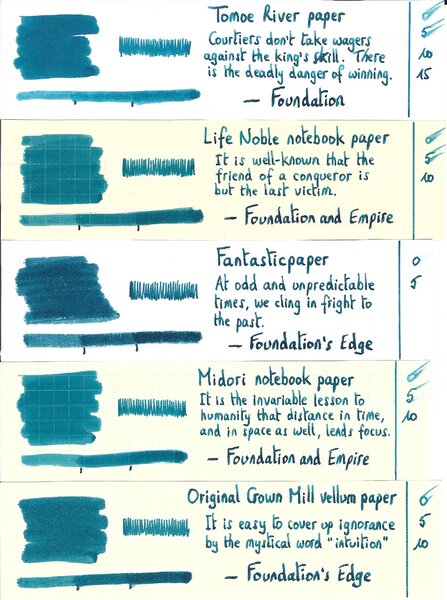 Tomoe River paper
Courtiers don't take wagers
against the king's skill. There
is the deadly danger of winning.
— Foundation
0
5
10
15
Life Noble notebook paper
It is well-known that the
friend of a conqueror is
but the last victim.
— Foundation and Empire
0
5
10
Fantasticpaper
At odd and unpredictable
times, we cling in fright to
the past.
— Foundation's Edge
0
5
Midori notebook paper
It is the invariable lesson to
humanity that distance in time,
and in space as well, lends focus.
— Foundation and Empire
0
5
10
Original Crown Mill vellum paper
It is easy to cover up ignorance
by the mystical word "intuition"
— Foundation's Edge
0
5
10